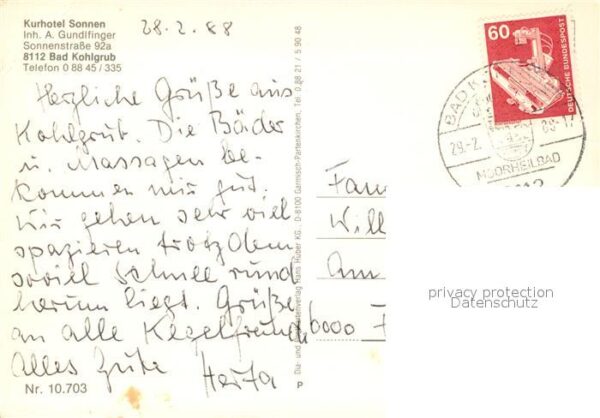 Kurhotel Sonnen
Inh. A. Gundlfinger
Sonnenstraße 92a
8112 Bad Kohlgrub
Telefon 0 88 45 / 335
28.2.88
Herzliche Grüße aus
Kohlgrub. Die Bäder
u. Massagen be-
kommen mir gut.
Wir gehen sehr viel
spazieren trotzdem
soviel Schnee rund
herum liegt. Grüße
an alle Kegelfreunde
Alles Gute
Herta
Nr. 10.703
Hans Huber KG · D-8100 Garmisch-Partenkirchen, Tel. 0 88 21 / 5 90 48
P
60
DEUTSCHE BUNDESPOST
BAD K
29.-2.
MOORHEILBAD
Fam
Will
Am
6000 F
privacy protection
Datenschutz